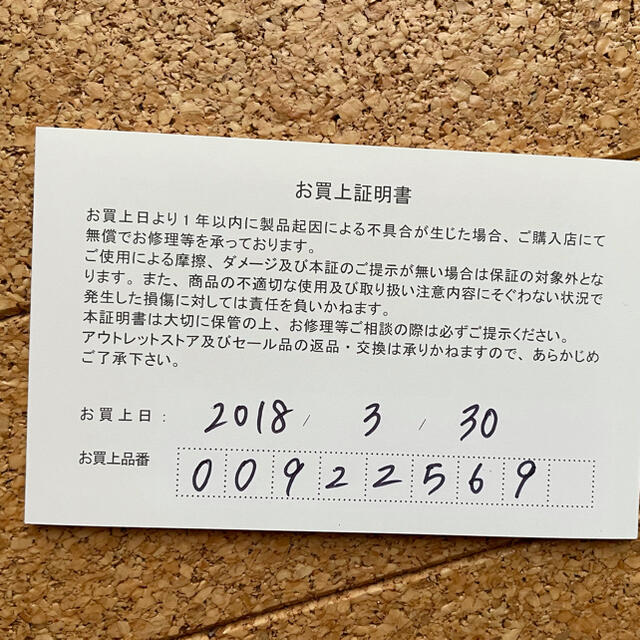 お買上証明書
お買上日より１年以内に製品起因による不具合が生じた場合、ご購入店にて
無償でお修理等を承っております。
ご使用による摩擦、ダメージ及び本証のご提示が無い場合は保証の対象外とな
ります。また、商品の不適切な使用及び取り扱い注意内容にそぐわない状況で
発生した損傷に対しては責任を負いかねます。
本証明書は大切に保管の上、お修理等ご相談の際は必ずご提示ください。
アウトレットストア及びセール品の返品・交換は承りかねますので、あらかじめ
ご了承下さい。
お買上日： 2018 / 3 / 30
お買上品番 00922569